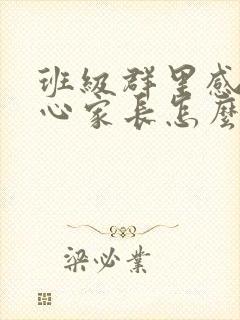 班級群里感
心家長怎麽
梁必業